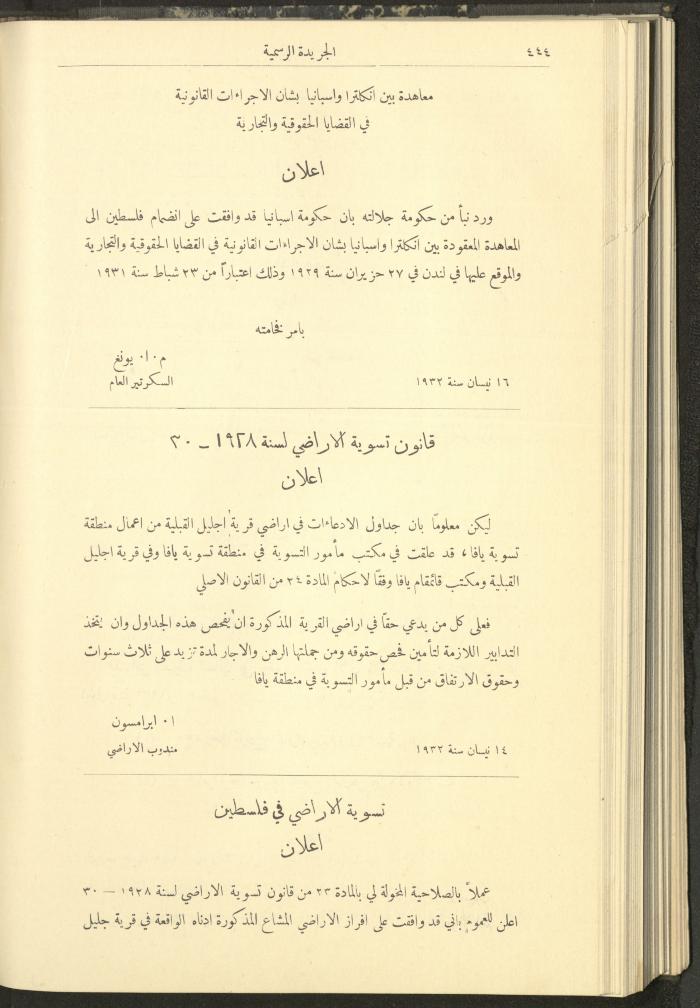 ٤٤٤
الجريدة الرسمية
معاهدة بين انكلترا واسبانيا بشان الاجراءات القانونية
في القضايا الحقوقية والتجارية
اعلان
ورد نبأ من حكومة جلالته بان حكومة اسبانيا قد وافقت على انضمام فلسطين الى
المعاهدة المعقودة بين انكلترا واسبانيا بشان الاجراءات القانونية في القضايا الحقوقية والتجارية
والموقع عليها في لندن في ٢٧ حزيران سنة ١٩٢٩ وذلك اعتباراً من ٢٣ شباط سنة ١٩٣١
بامر فخامته
م٠ا٠ يونغ
١٦ نيسان سنة ١٩٣٢
السكرتير العام
قانون تسوية الاراضي لسنة ١٩٢٨ ـ ٣٠
اعلان
ليكن معلومًا بان جداول الادعاءات في اراضي قرية اجليل القبلية من اعمال منطقة
تسوية يافا، قد علقت في مكتب مأمور التسوية في منطقة تسوية يافا وفي قرية اجليل
القبلية ومكتب قائمقام يافا وفقًا لاحكام المادة ٢٤ من القانون الاصلي
فعلى كل من يدعي حقًا في اراضي القرية المذكورة ان يفحص هذه الجداول وان يتخذ
التدابير اللازمة لتأمين فحص حقوقه ومن جملتها الرهن والاجار لمدة تزيد على ثلاث سنوات
وحقوق الارتفاق من قبل مأمور التسوية في منطقة يافا
ا٠ ابرامسون
١٤ نيسان سنة ١٩٣٢
مندوب الاراضي
تسوية الاراضي في فلسطين
اعلان
عملاً بالصلاحية المخولة لي بالمادة ٢٣ من قانون تسوية الاراضي لسنة ١٩٢٨ — ٣٠
اعلن للعموم باني قد وافقت على افراز الاراضي المشاع المذكورة ادناه الواقعة في قرية جليل